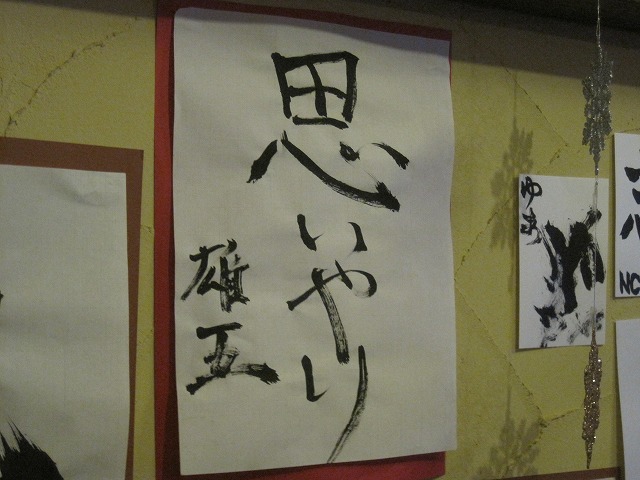 思いやり
雄五
NC